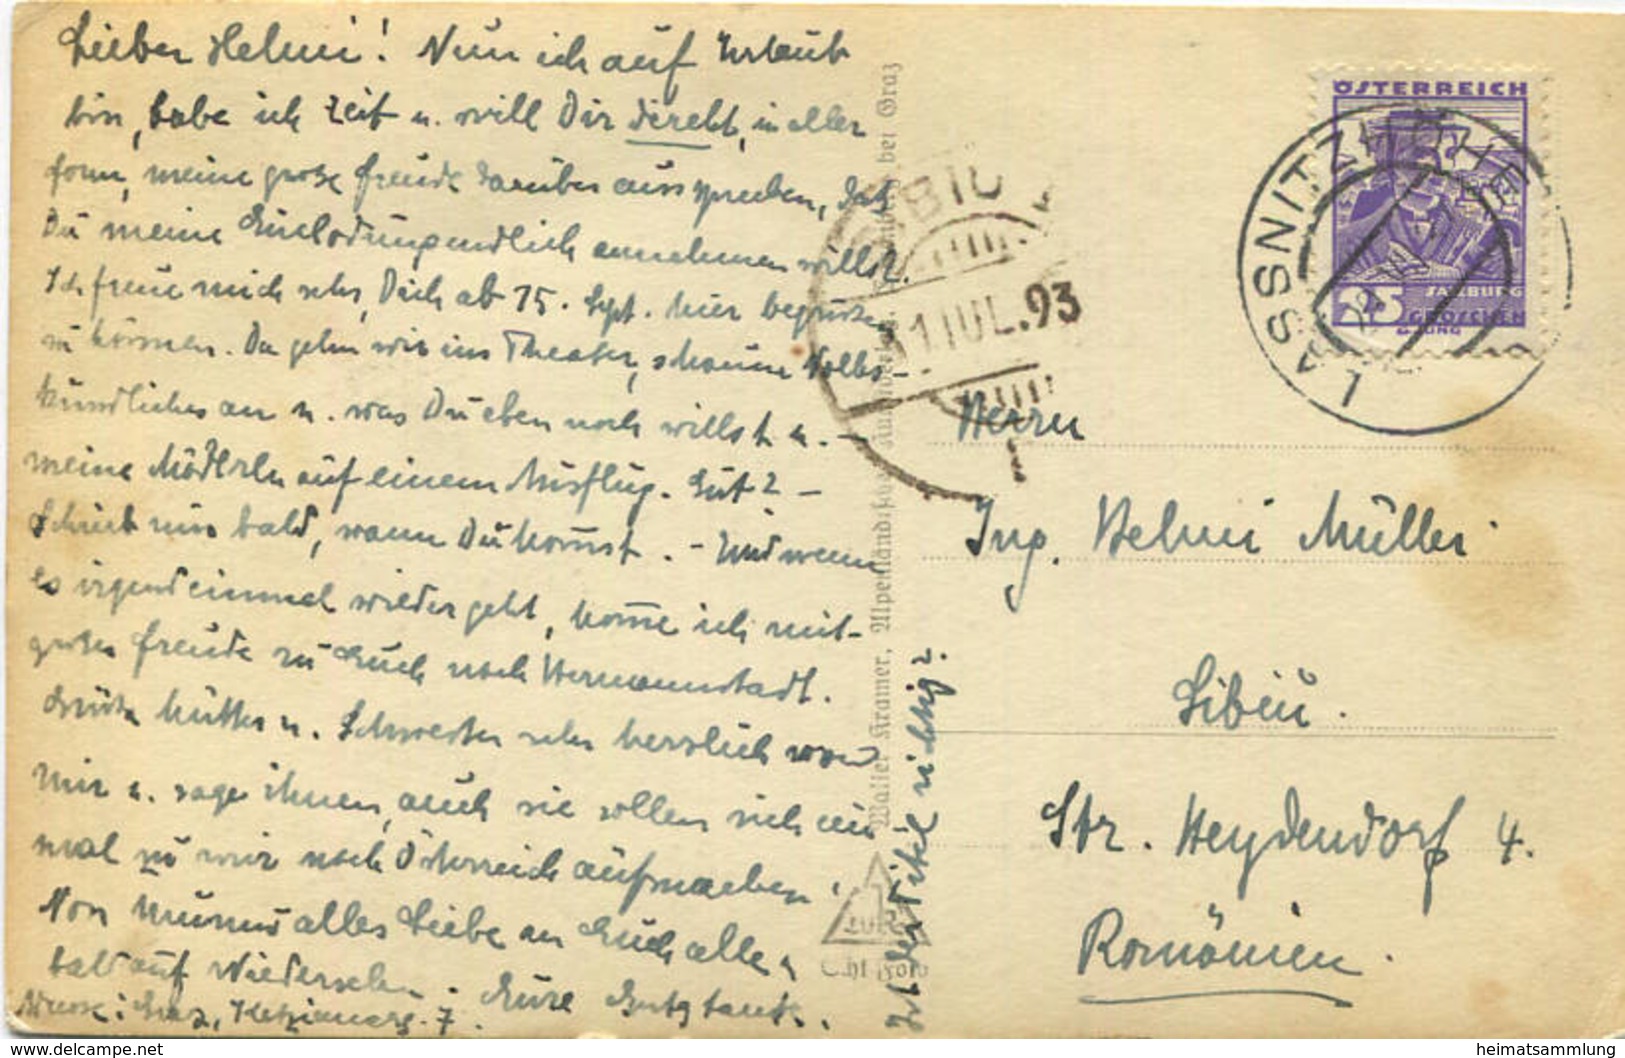 Lieber Helmi! Nun ich auf Urlaub
bin, habe ich Zeit u. will Dir direkt, in aller
Form, meine große Freude darüber aussprechen, daß
Du meine Einladung endlich annehmen willst.
Ich freue mich sehr, Dich ab 15. Sept. hier begrüßen
zu können. Da gehn wir ins Theater, schauen Volks-
kundliches an u. was Du eben noch willst u. –
meine Mäderln auf einem Ausflug. Gut? –
Schreib nur bald, wann Du kom̄st. – Und wenn
es irgend einmal wieder geht, kom̄e ich mit
großer Freude zu Euch nach Hermannstadt.
Grüße Mutter u. Schwester sehr herzlich von
mir u. sage ihnen, auch sie sollen sich ein
mal zu mir nach Österreich aufmachen.
Von alles Liebe an Euch alle u.
bald auf Wiedersehen. Eure
Adresse: Graz, 7.
Ist der Titel richtig?
Walter Kramer, bei Graz
Echt Foto
ÖSTERREICH
25
SALZBURG
GROSCHEN
LASSNITZHÖHE
SIBIU
31 IUL. 93
Herrn
Ing. Helmi Müller
Sibiu.
Str. Heydendorf 4.
Romänien.
delcampe.net
heimatsammlung